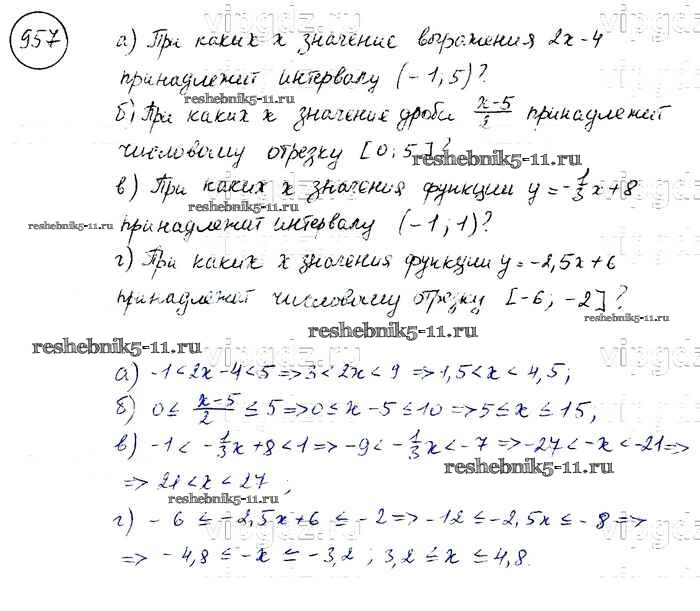 957
а) При каких x значение выражения 2x-4
принадлежит интервалу (-1; 5)?
reshebnik5-11.ru
б) При каких x значение дроби (x-5)/2 принадлежит
числовому отрезку [0; 5]?
reshebnik5-11.ru
в) При каких x значения функции y = -1/3x+8
reshebnik5-11.ru
reshebnik5-11.ru
принадлежит интервалу (-1; 1)?
г) При каких x значения функции y = -2,5x+6
принадлежит числовому отрезку [-6; -2]?
reshebnik5-11.ru
reshebnik5-11.ru
reshebnik5-11.ru
а) -1<2x-4<5=>3<2x<9=>1,5<x<4,5;
б) 0≤ (x-5)/2 ≤5=>0≤x-5≤10=>5≤x≤15;
в) -1<-1/3x+8<1=>-9<-1/3x<-7=>-27<-x<-21=>
reshebnik5-11.ru
=> 21<x<27;
reshebnik5-11.ru
г) -6≤-2,5x+6≤-2=>-12≤-2,5x≤-8=>
=> -4,8≤-x≤-3,2; 3,2≤x≤4,8.